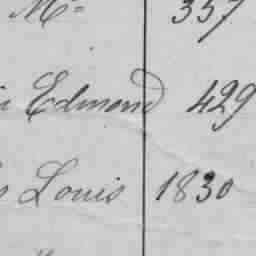 Mce 357
Edmond 429
Louis 1830